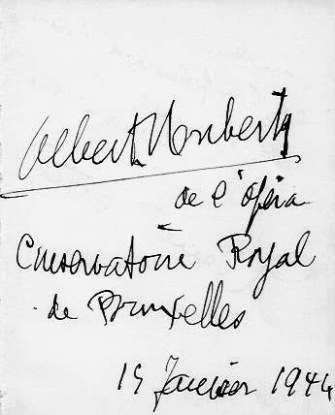 Albert Huberty
de l'opéra
Conservatoire Royal
de Bruxelles
15 Janvier 1944